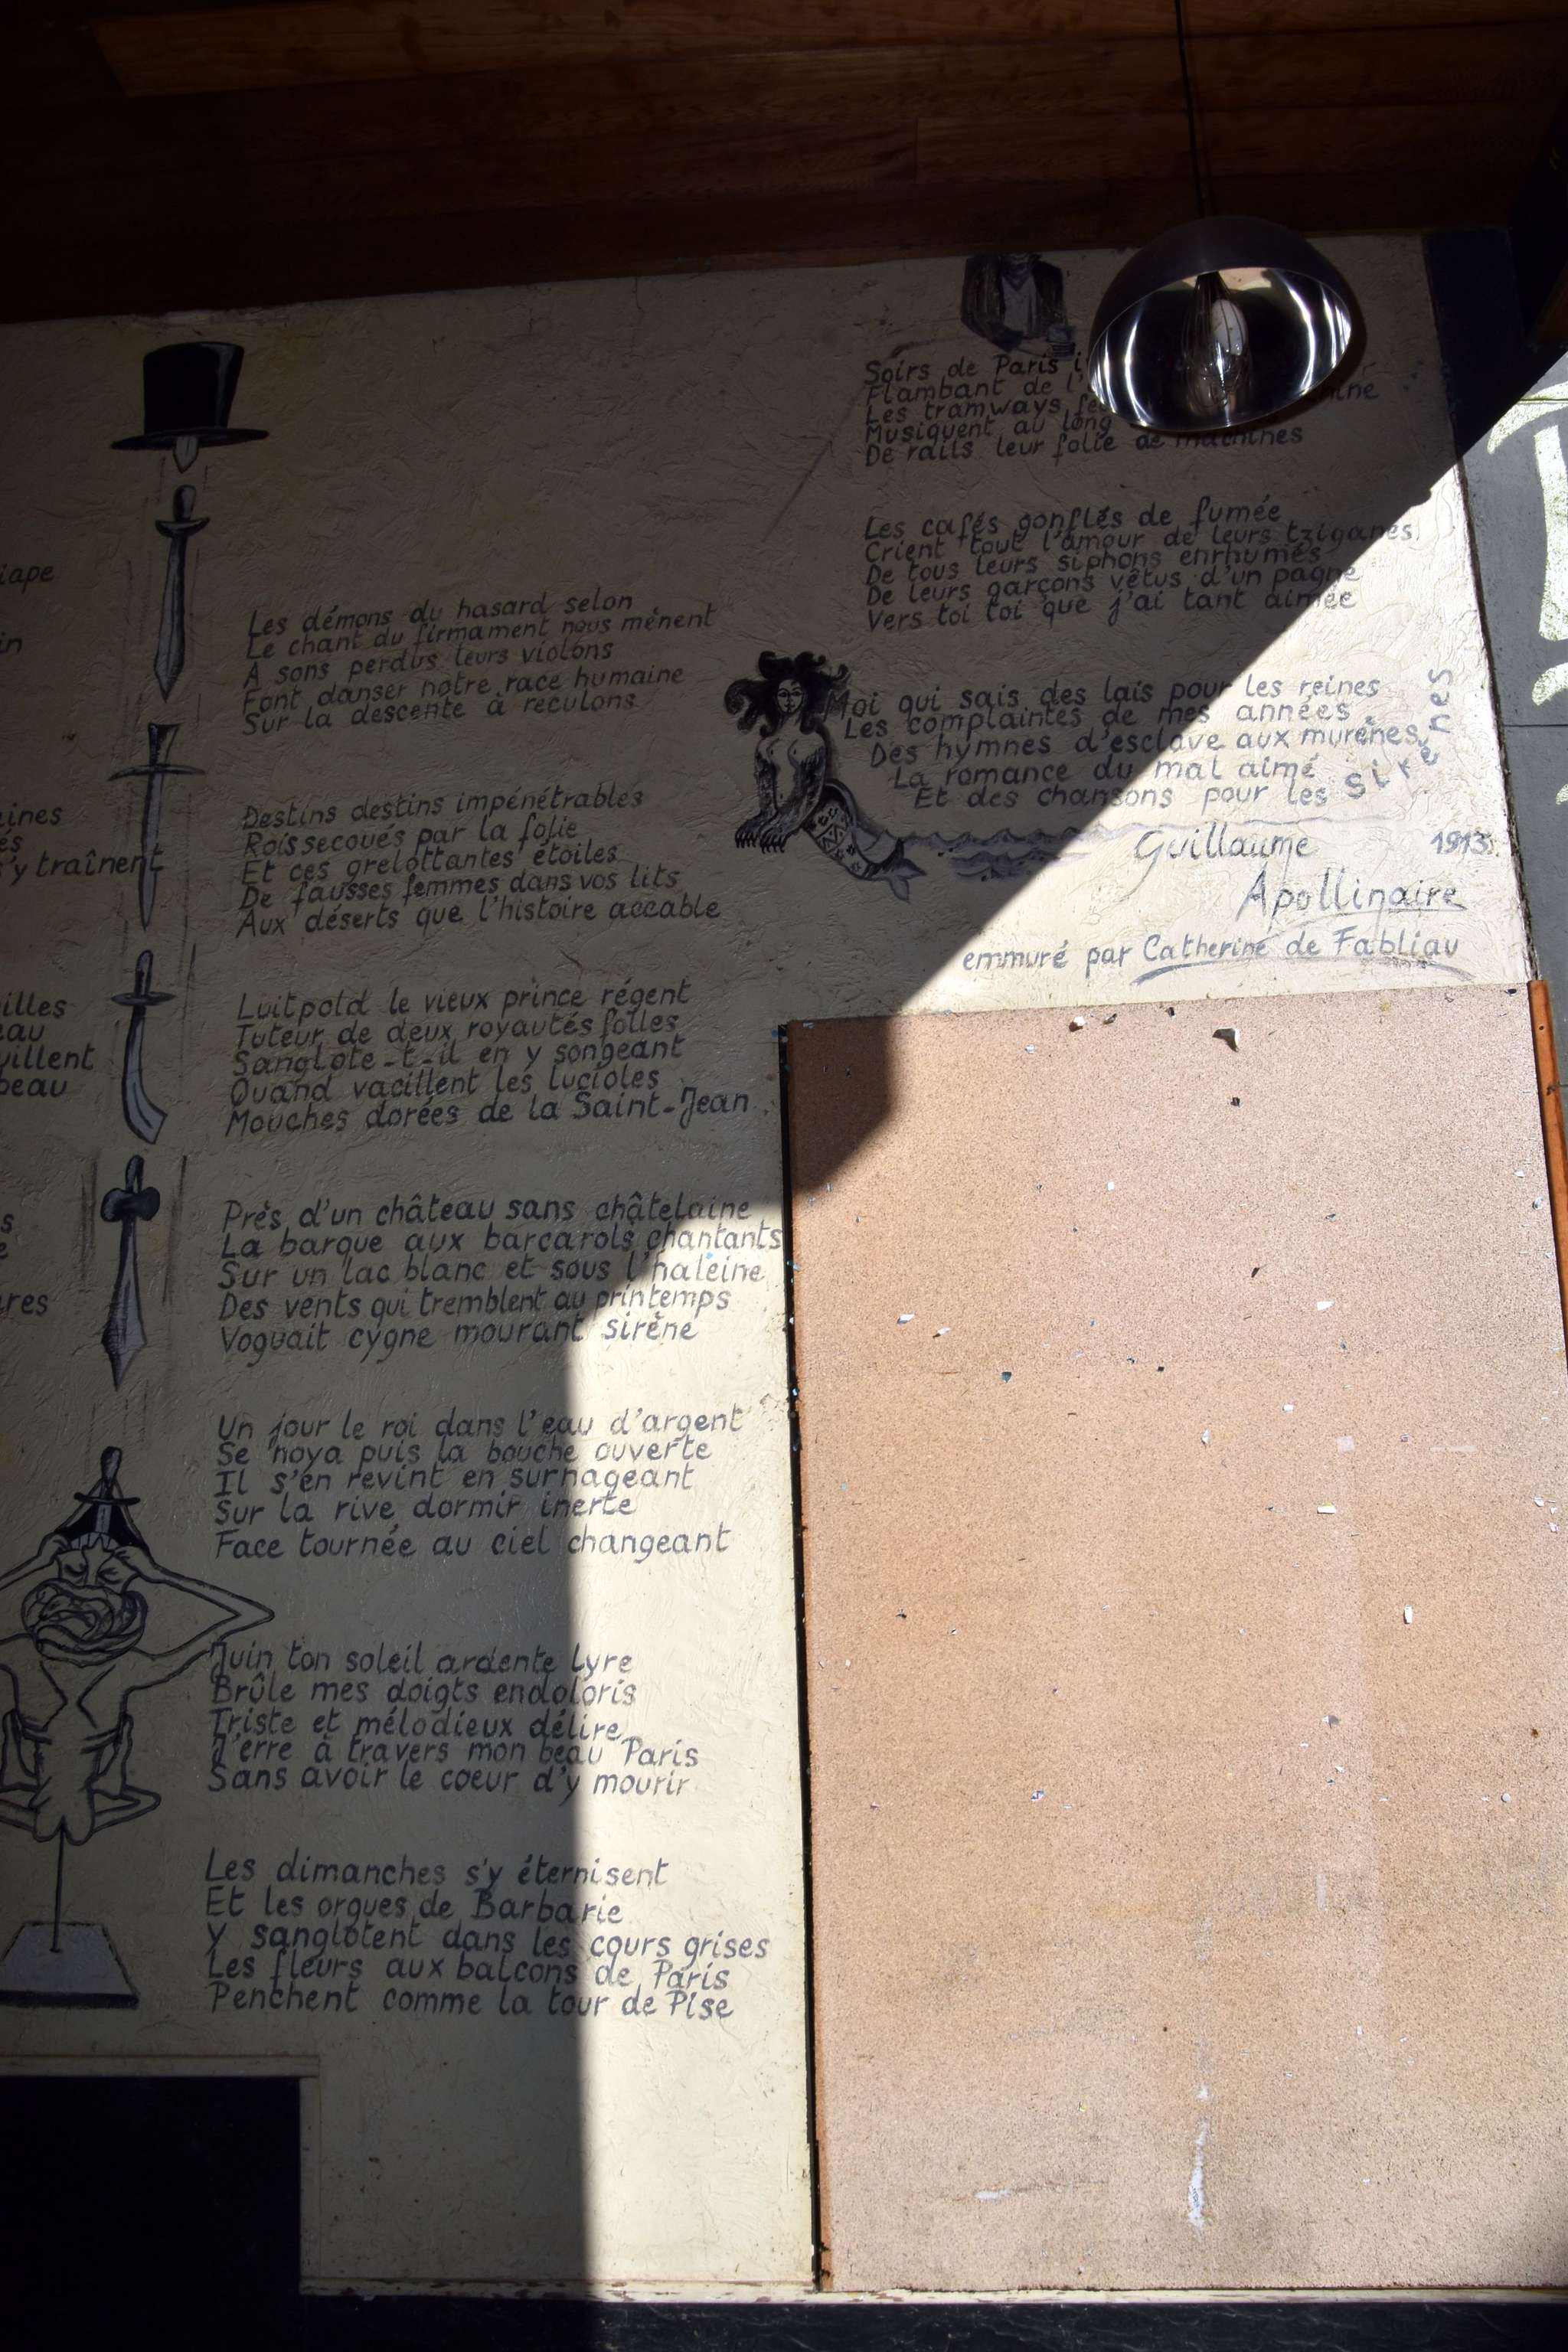 iape
in
aines
és
s'y traînent
illes
eau
uillent
beau
s
e
res
Les démons du hasard selon
Le chant du firmament nous mènent
A sons perdus leurs violons
Font danser notre race humaine
Sur la descente à reculons
Destins destins impénétrables
Rois secoués par la folie
Et ces grelottantes étoiles
De fausses femmes dans vos lits
Aux déserts que l'histoire accable
Luitpold le vieux prince régent
Tuteur de deux royautés folles
Sanglote-t-il en y songeant
Quand vacillent les lucioles
Mouches dorées de la Saint-Jean
Près d'un château sans châtelaine
La barque aux barcarols chantants
Sur un lac blanc et sous l'haleine
Des vents qui tremblent au printemps
Voguait cygne mourant sirène
Un jour le roi dans l'eau d'argent
Se noya puis la bouche ouverte
Il s'en revint en surnageant
Sur la rive dormir inerte
Face tournée au ciel changeant
Juin ton soleil ardente lyre
Brûle mes doigts endoloris
Triste et mélodieux délire
J'erre à travers mon beau Paris
Sans avoir le coeur d'y mourir
Les dimanches s'y éternisent
Et les orgues de Barbarie
Y sanglotent dans les cours grises
Les fleurs aux balcons de Paris
Penchent comme la tour de Pise
Soirs de Paris i
Flambant de l'
Les tramways feu ine
Musiquent au long
De rails leur folie de machines
Les cafés gonflés de fumée
Crient tout l'amour de leurs tziganes
De tous leurs siphons enrhumés
De leurs garçons vêtus d'un pagne
Vers toi toi que j'ai tant aimée
Moi qui sais des lais pour les reines
Les complaintes de mes années
Des hymnes d'esclave aux murènes
La romance du mal aimé
Et des chansons pour les sirènes
Guillaume 1913
Apollinaire
emmuré par Catherine de Fabliau